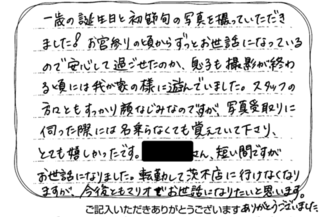 一歳の誕生日と初節句の写真を撮っていただき
ました♪お宮参りの頃からずっとお世話になっている
ので安心して過ごせたのか、息子も撮影が終わ
る頃には我が家の様に遊んでいました。スタッフの
方々ともすっかり顔なじみなのですが、写真受取りに
伺った際には名乗らなくても覚えていて下さり、
とても嬉しかったです。さん、短い間ですが
お世話になりました。転勤して茨木店に行けなくなり
ますが、今後ともマリオでお世話になりたいと思います。
ご記入いただきありがとうございます ありがとうございました